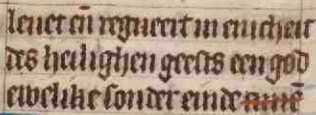 leuet eñ regneert in enicheit
des heilighen geests een god
ewelike sonder einde amē